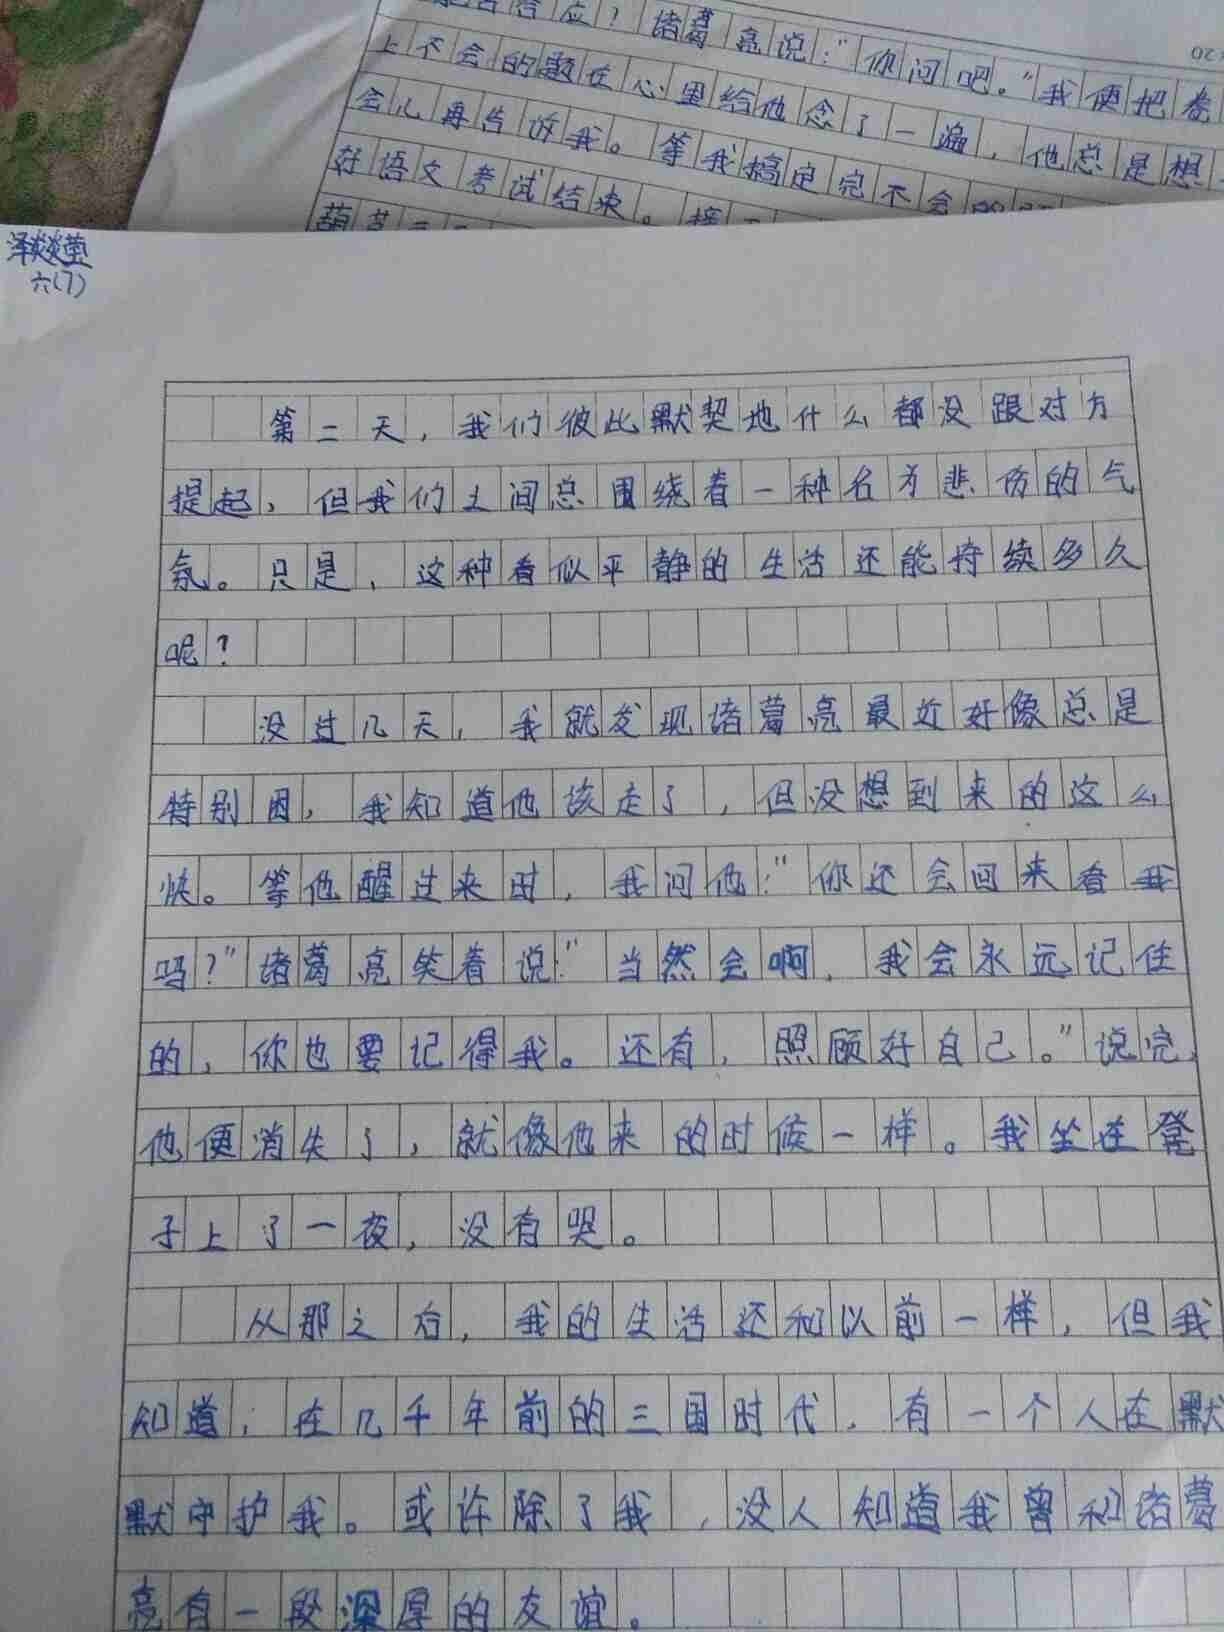 应？诸葛亮说：“你问吧。”我便把卷
上不会的题在心里给他念了一遍，他总是想一
会儿再告诉我。等我搞定完不会的
好语文考试结束。接
20
六(7)
第二天，我们彼此默契地什么都没跟对方
提起，但我们之间总围绕着一种名为悲伤的气
氛。只是，这种看似平静的生活还能持续多久
呢？
没过几天，我就发现诸葛亮最近好像总是
特别困，我知道他该走了，但没想到来的这么
快。等他醒过来时，我问他：“你还会回来看我
吗？”诸葛亮笑着说：“当然会啊，我会永远记住
的，你也要记得我。还有，照顾好自己。”说完，
他便消失了，就像他来的时候一样。我坐在凳
子上了一夜，没有哭。
从那之后，我的生活还和以前一样，但我
知道，在几千年前的三国时代，有一个人在默
默守护我。或许除了我，没人知道我曾和诸葛
亮有一段深厚的友谊。